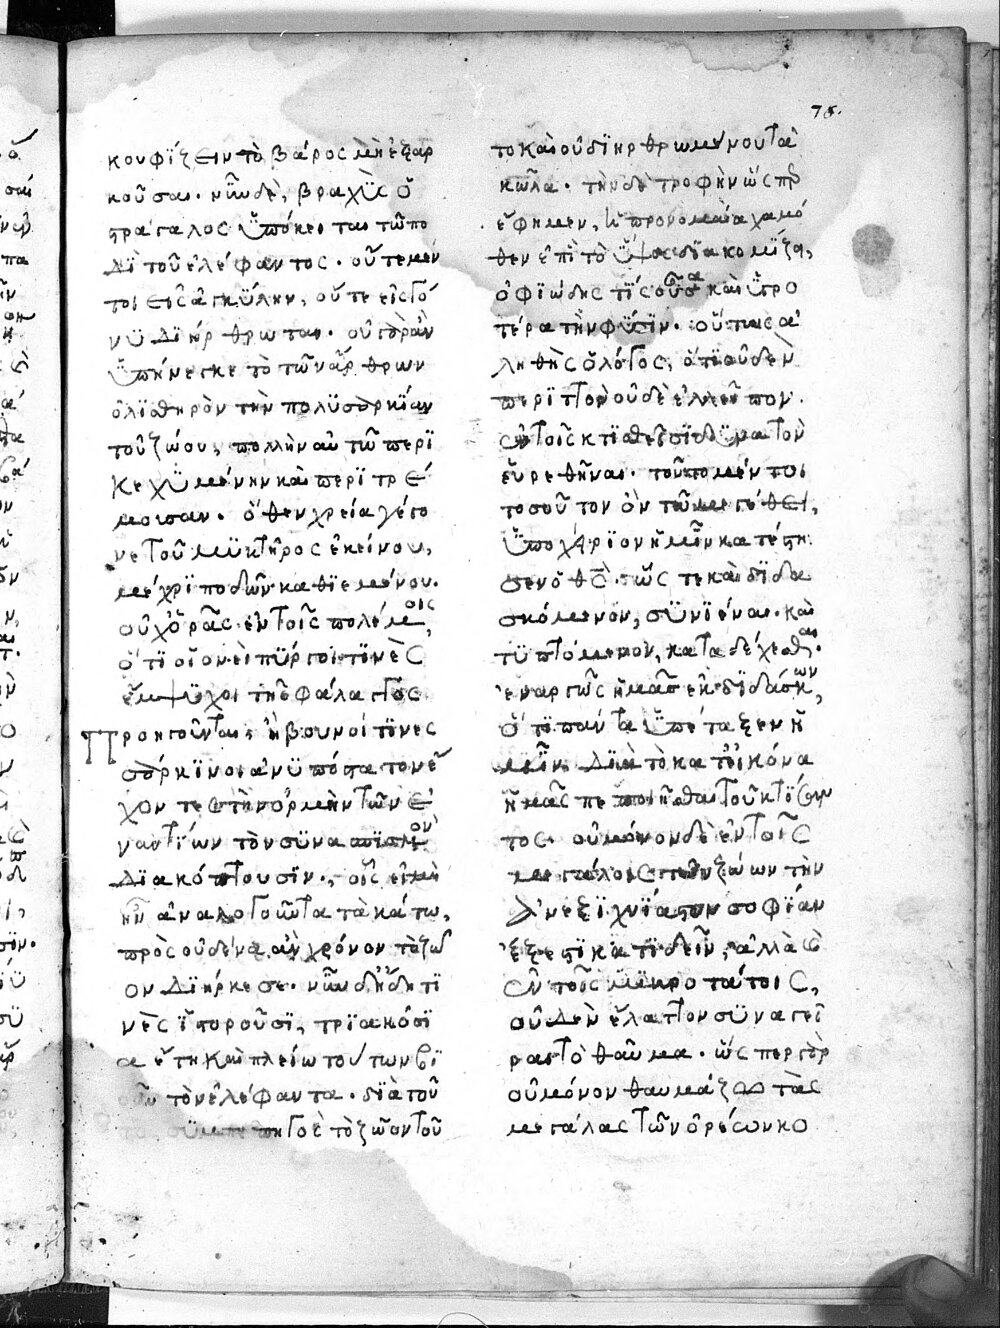 75.
κουφίζειν τὸ βάρος μὴ ἐξαρ
κοῦσαι. νῦν δὲ, βραχὺς ὁ
στράγαλος ὑπόκειται τῶ πο
δὶ τοῦ ἐλέφαντος. οὔτε μέν
τοι εἰς ἀγκύλην, οὔτε εἰς γό
νυ διήρθρωται. οὐ γὰρ ἂν
ὑπήνεγκε τὸ τῶν ἄρθρων
ὀλισθηρὸν τὴν πολυσαρκίαν
τοῦ ζώου, πολλὴν αὐτῶ περι
κεχυμένην καὶ περιτρέ
μουσαν. ὅθεν χρεία γέγο
νε τοῦ μυκτῆρος ἐκείνου,
μέχρι ποδῶν καθιεμένου.
οὐχ ὁρᾶς ἐν τοῖς πολέμοις,
ὅτι οἱονεὶ πύργοι τινὲς
ἔμψυχοι τῆς φάλαγγος
προηγοῦνται; ἢ βουνοί τινες
σάρκινοι ἀνυπόστατον ἔ
χοντες τὴν ὁρμὴν τῶν ἐ
ναντίων τὸν συνασπισμὸν
διακόπτουσιν; οἷς εἰ μὴ
ἦν ἀναλογοῦντα τὰ κάτω,
πρὸς οὐδένα ἂν χρόνον τὸ ζῶ
ον διήρκεσε. νῦν δὲ ἤδη τι
νὲς ἱστοροῦσι, τριακόσι
α ἔτη καὶ πλείω τούτων βι
οῦν τὸν ἐλέφαντα. διὰ τοῦ
το συμπεπηγὸς τὸ ζῶον τοῦ
το καὶ οὐ διηρθρωμένου τὰ
κῶλα. τὴν δὲ τροφὴν ὥσπερ
ἔφημεν, ἡ προνομαία χαμό
θεν ἐπὶ τὸ ὕψος διακομίζει,
ὀφιώδης τις οὖσα καὶ ὑγρο
τέρα τὴν φύσιν. οὕτως ἀ
ληθὴς ὁ λόγος, ὅτι οὐδὲν
περιττὸν οὐδὲ ἐλλεῖπον
ἐν τοῖς κτισθεῖσι δυνατὸν
εὑρεθῆναι. τοῦτο μέν τοι
τοσοῦτον ὂν τῶ μεγέθει,
ὑποχείριον ἡμῖν κατέστη
σεν ὁ θς. ὥς τε καὶ διδα
σκόμενον, συνιέναι. καὶ
τυπτόμενον, καταδέχεσθαι.
ἐναργῶς ἡμᾶς ἐκδιδάσκων,
ὅτι πάντα ὑπέταξεν ἡ
μῖν. διὰ τὸ κατ εἰκόνα
ἡμᾶς πεποιῆσθαι τοῦ κτίσαν
τος. οὐ μόνον δὲ ἐν τοῖς
μεγάλοις τῶν ζώων τὴν
ἀνεξιχνίαστον σοφίαν
ἔξεστι κατιδεῖν, ἀλλὰ καὶ
ἐν τοῖς μικροτάτοις,
οὐδὲν ἔλαττον συναγεῖ
ραι τὸ θαῦμα. ὥσπερ γὰρ
οὐ μόνον θαυμάζω τὰς
μεγάλας τῶν ὀρέων κο